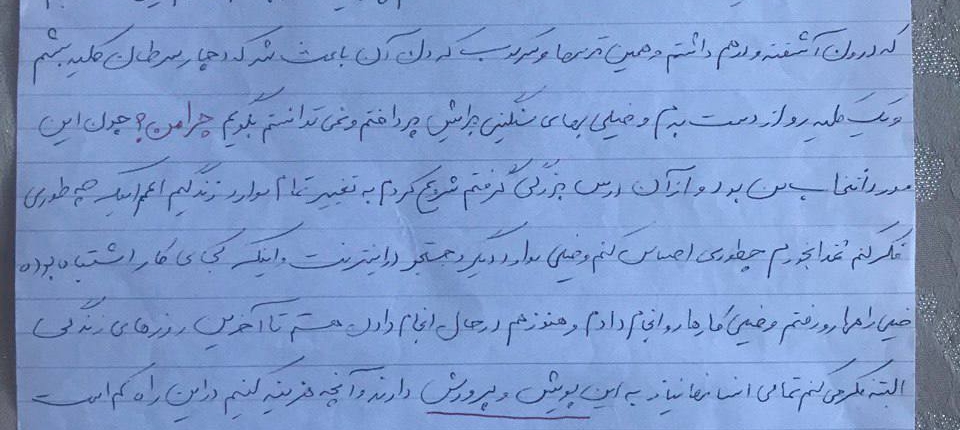 که درون آشفته و درهم داشتم و همین ترسها و که دل آن باعث شد که دچار سرطان کلیه بشم
و یک کلیه رو از دست بدم و خیلی بهای سنگینی براش پرداختم و نمی تونستم بگویم چرا من؟ چون این
مورد انتخاب من بود و از آن درس بزرگی گرفتم شروع کردم به تغییر تمام موارد زندگیم اعم اینکه چه طوری
فکر کنم غذا بخورم چطوری احساس کنم و خیلی موارد دیگر و جستجو در اینترنت و اینکه کجای کار اشتباه بوده
خیلی راهها رو رفتم و خیلی کارها رو انجام دادم و هنوز هم در حال انجام دادن هستم تا آخرین روزهای زندگی
البته فکر می کنم تمامی انسانها نیاز به این پویش و پرورش دارند و آنچه هزینه کنیم در این راه کم است